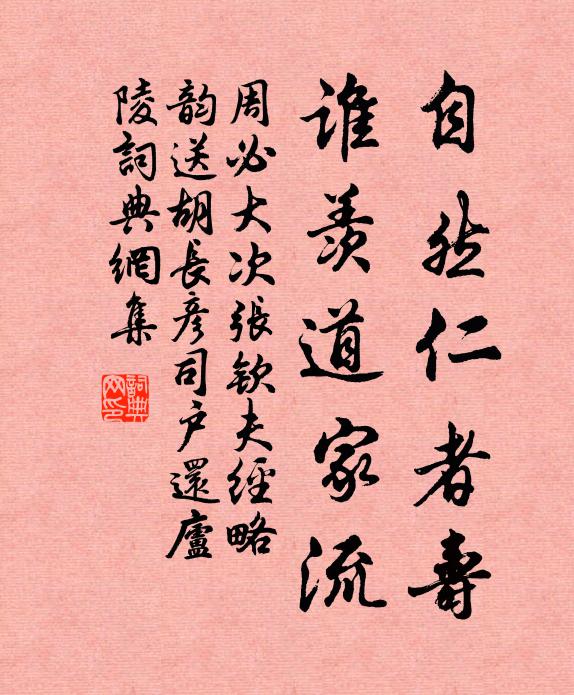 自然仁者壽
誰羨道家流
周必大次張欽夫經略
韵送胡長彥司戶還廬
陵詞典網集
詞典
网印